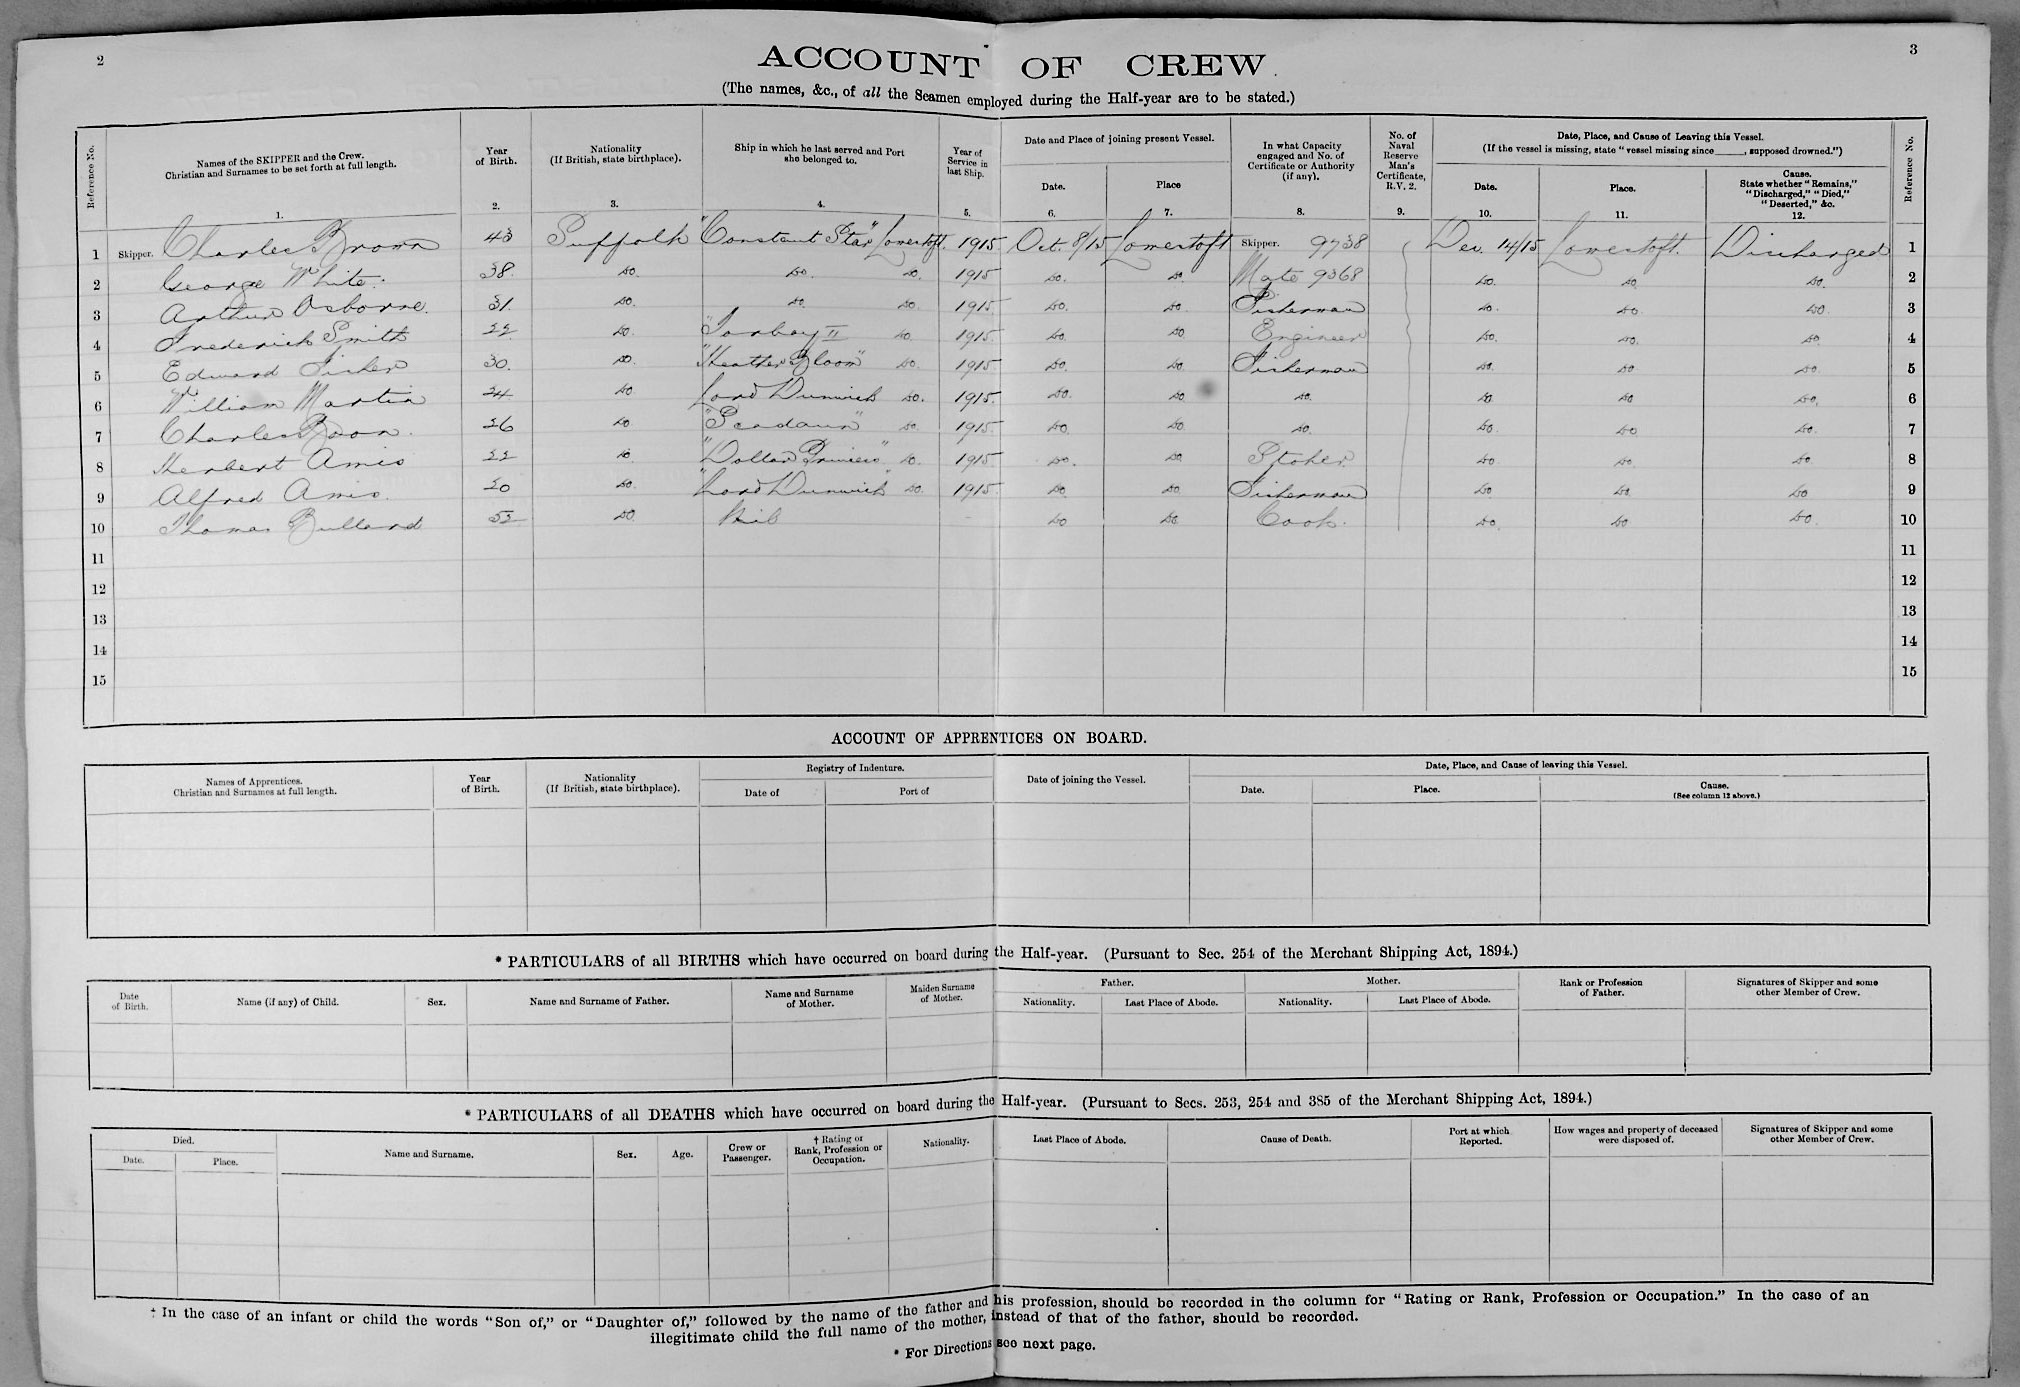 2
3
ACCOUNT OF CREW.
(The names, &c., of all the Seamen employed during the Half-year are to be stated.)
Reference No.
Names of the SKIPPER and the Crew.
Christian and Surnames to be set forth at full length.
1.
Year
of Birth.
2.
Nationality
(If British, state birthplace).
3.
Ship in which he last served and Port
she belonged to.
4.
Year of
Service in
last Ship.
5.
Date and Place of joining present Vessel.
Date.
6.
Place
7.
In what Capacity
engaged and No. of
Certificate or Authority
(if any).
8.
No. of
Naval
Reserve
Man's
Certificate,
R.V. 2.
9.
Date, Place, and Cause of Leaving this Vessel.
(If the vessel is missing, state "vessel missing since ____, supposed drowned.")
Date.
10.
Place.
11.
Cause.
State whether "Remains,"
"Discharged," "Died,"
"Deserted," &c.
12.
Reference No.
1 Skipper. Charles Brown 43 Suffolk "Constant Star" Lowestoft. 1915 Oct. 8/15 Lowestoft Skipper. 9738 Dec. 14/15 Lowestoft. Discharged 1
2 George White. 38. do. do. do. 1915 do. do Mate 9368 do. do. do. 2
3 Arthur Osborne. 31. do. do. do. 1915. do. do. Fisherman do. do. do. 3
4 Frederick Smith 22 do. "Torbay II do. 1915. do. do Engineer do. do. do. 4
5 Edward Fisher 30. do. "Heather Bloom" do. 1915. do. do. Fisherman do. do do. 5
6 William Martin 24 do Lord Dunwich do. 1915. do. do do. do do do. 6
7 Charles 26 do " " do. 1915. do. do. do. do. do do. 7
8 Herbert Amis 22 do "Dollar Princess" do. 1915. do. do Stoker do do. do 8
9 Alfred Amis. 20 do. "Lord Dunwich" do. 1915. do do. Fisherman do do. do 9
10 Thomas Bullard 52 do Nil do do. Cook. do. do do. 10
11 11
12 12
13 13
14 14
15 15
ACCOUNT OF APPRENTICES ON BOARD.
Names of Apprentices.
Christian and Surnames at full length.
Year
of Birth.
Nationality
(If British, state birthplace).
Registry of Indenture.
Date of
Port of
Date of joining the Vessel.
Date, Place, and Cause of leaving this Vessel.
Date.
Place.
Cause.
(See column 12 above.)
* PARTICULARS of all BIRTHS which have occurred on board during the Half-year. (Pursuant to Sec. 254 of the Merchant Shipping Act, 1894.)
Date
of Birth.
Name (if any) of Child.
Sex.
Name and Surname of Father.
Name and Surname
of Mother.
Maiden Surname
of Mother.
Father.
Nationality.
Last Place of Abode.
Mother.
Nationality.
Last Place of Abode.
Rank or Profession
of Father.
Signatures of Skipper and some
other Member of Crew.
* PARTICULARS of all DEATHS which have occurred on board during the Half-year. (Pursuant to Secs. 253, 254 and 385 of the Merchant Shipping Act, 1894.)
Died.
Date.
Place.
Name and Surname.
Sex.
Age.
Crew or
Passenger.
† Rating or
Rank, Profession or
Occupation.
Nationality.
Last Place of Abode.
Cause of Death.
Port at which
Reported.
How wages and property of deceased
were disposed of.
Signatures of Skipper and some
other Member of Crew.
† In the case of an infant or child the words "Son of," or "Daughter of," followed by the name of the father and his profession, should be recorded in the column for "Rating or Rank, Profession or Occupation." In the case of an
illegitimate child the full name of the mother, instead of that of the father, should be recorded.
* For Directions see next page.